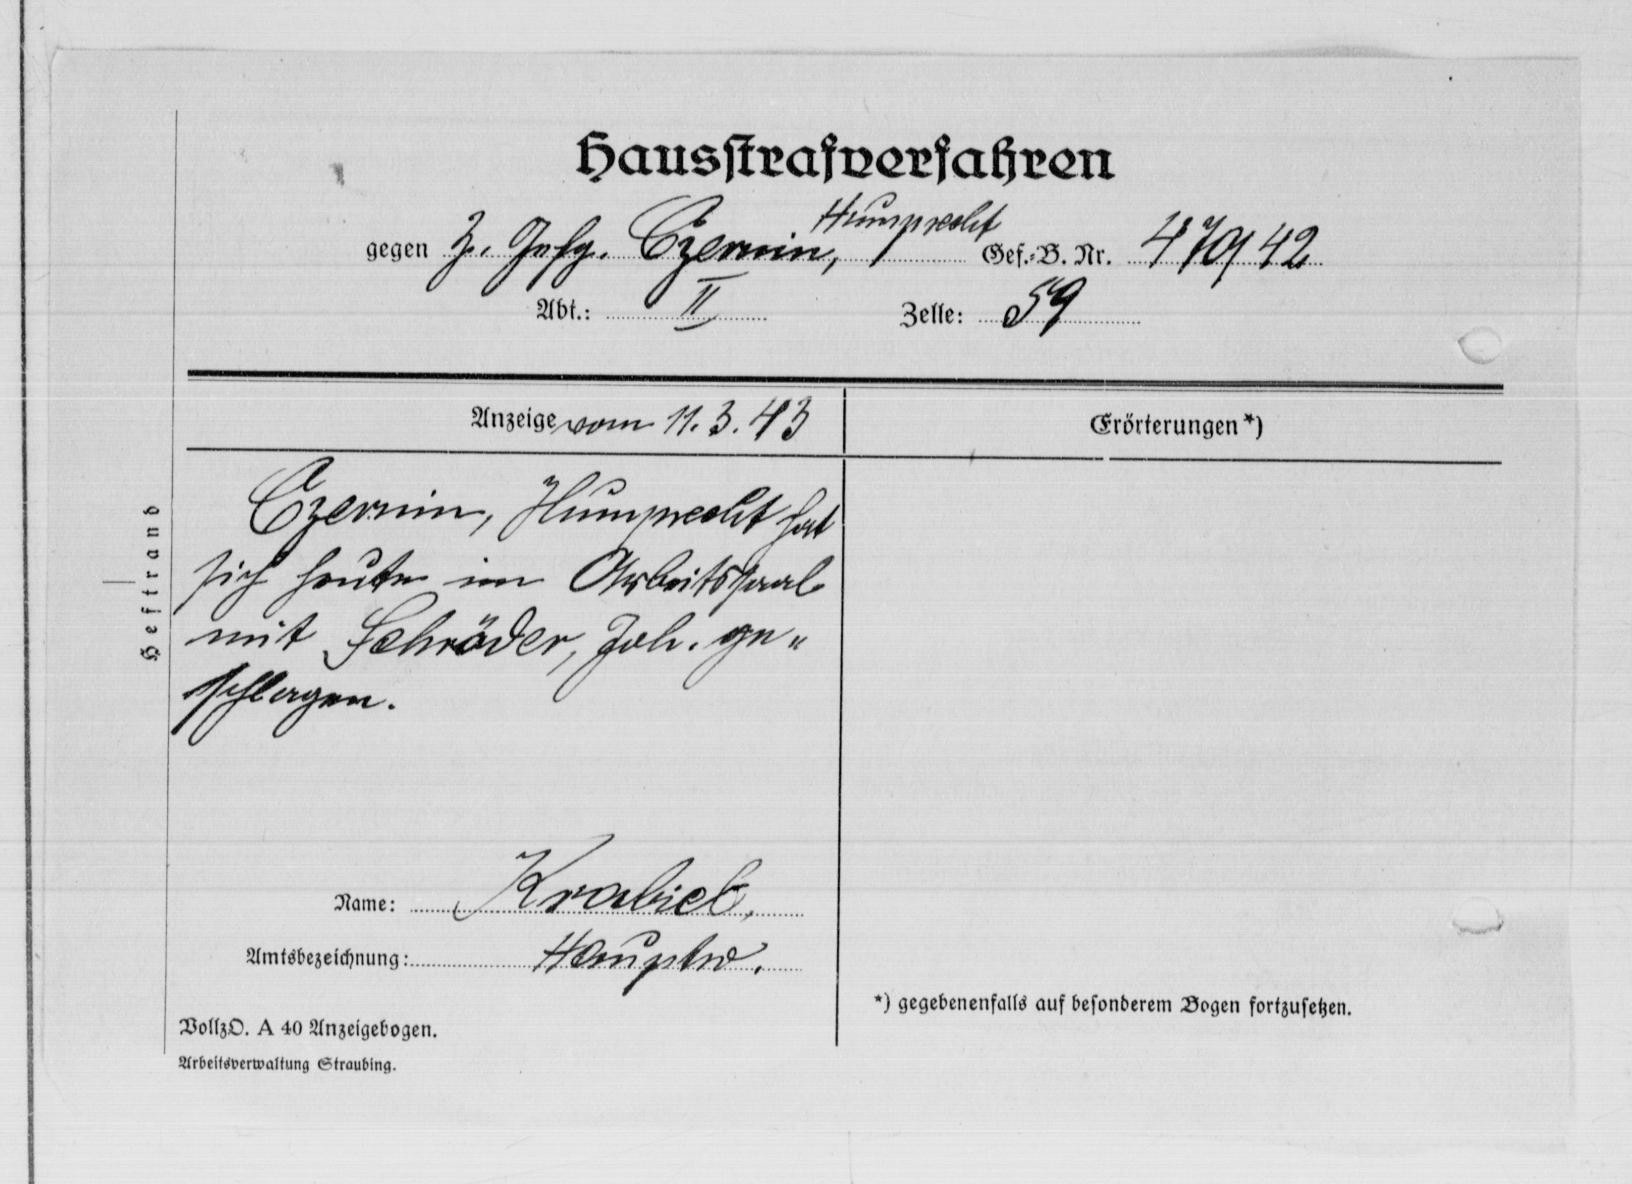 Hausstrafverfahren
gegen Z. Gefg. Czernin, Humprecht Gef.-B. Nr. 470/42
Abt.: II Zelle: 59
Anzeige vom 11.3.43
Erörterungen *)
Heftrand
Czernin, Humprecht hat
sich heute im Arbeitssaal
mit Schröder, Joh. ge„
schlagen.
Name: Krabiel,
Amtsbezeichnung: Hauptw.
*) gegebenenfalls auf besonderem Bogen fortzusetzen.
VollzO. A 40 Anzeigebogen.
Arbeitsverwaltung Straubing.